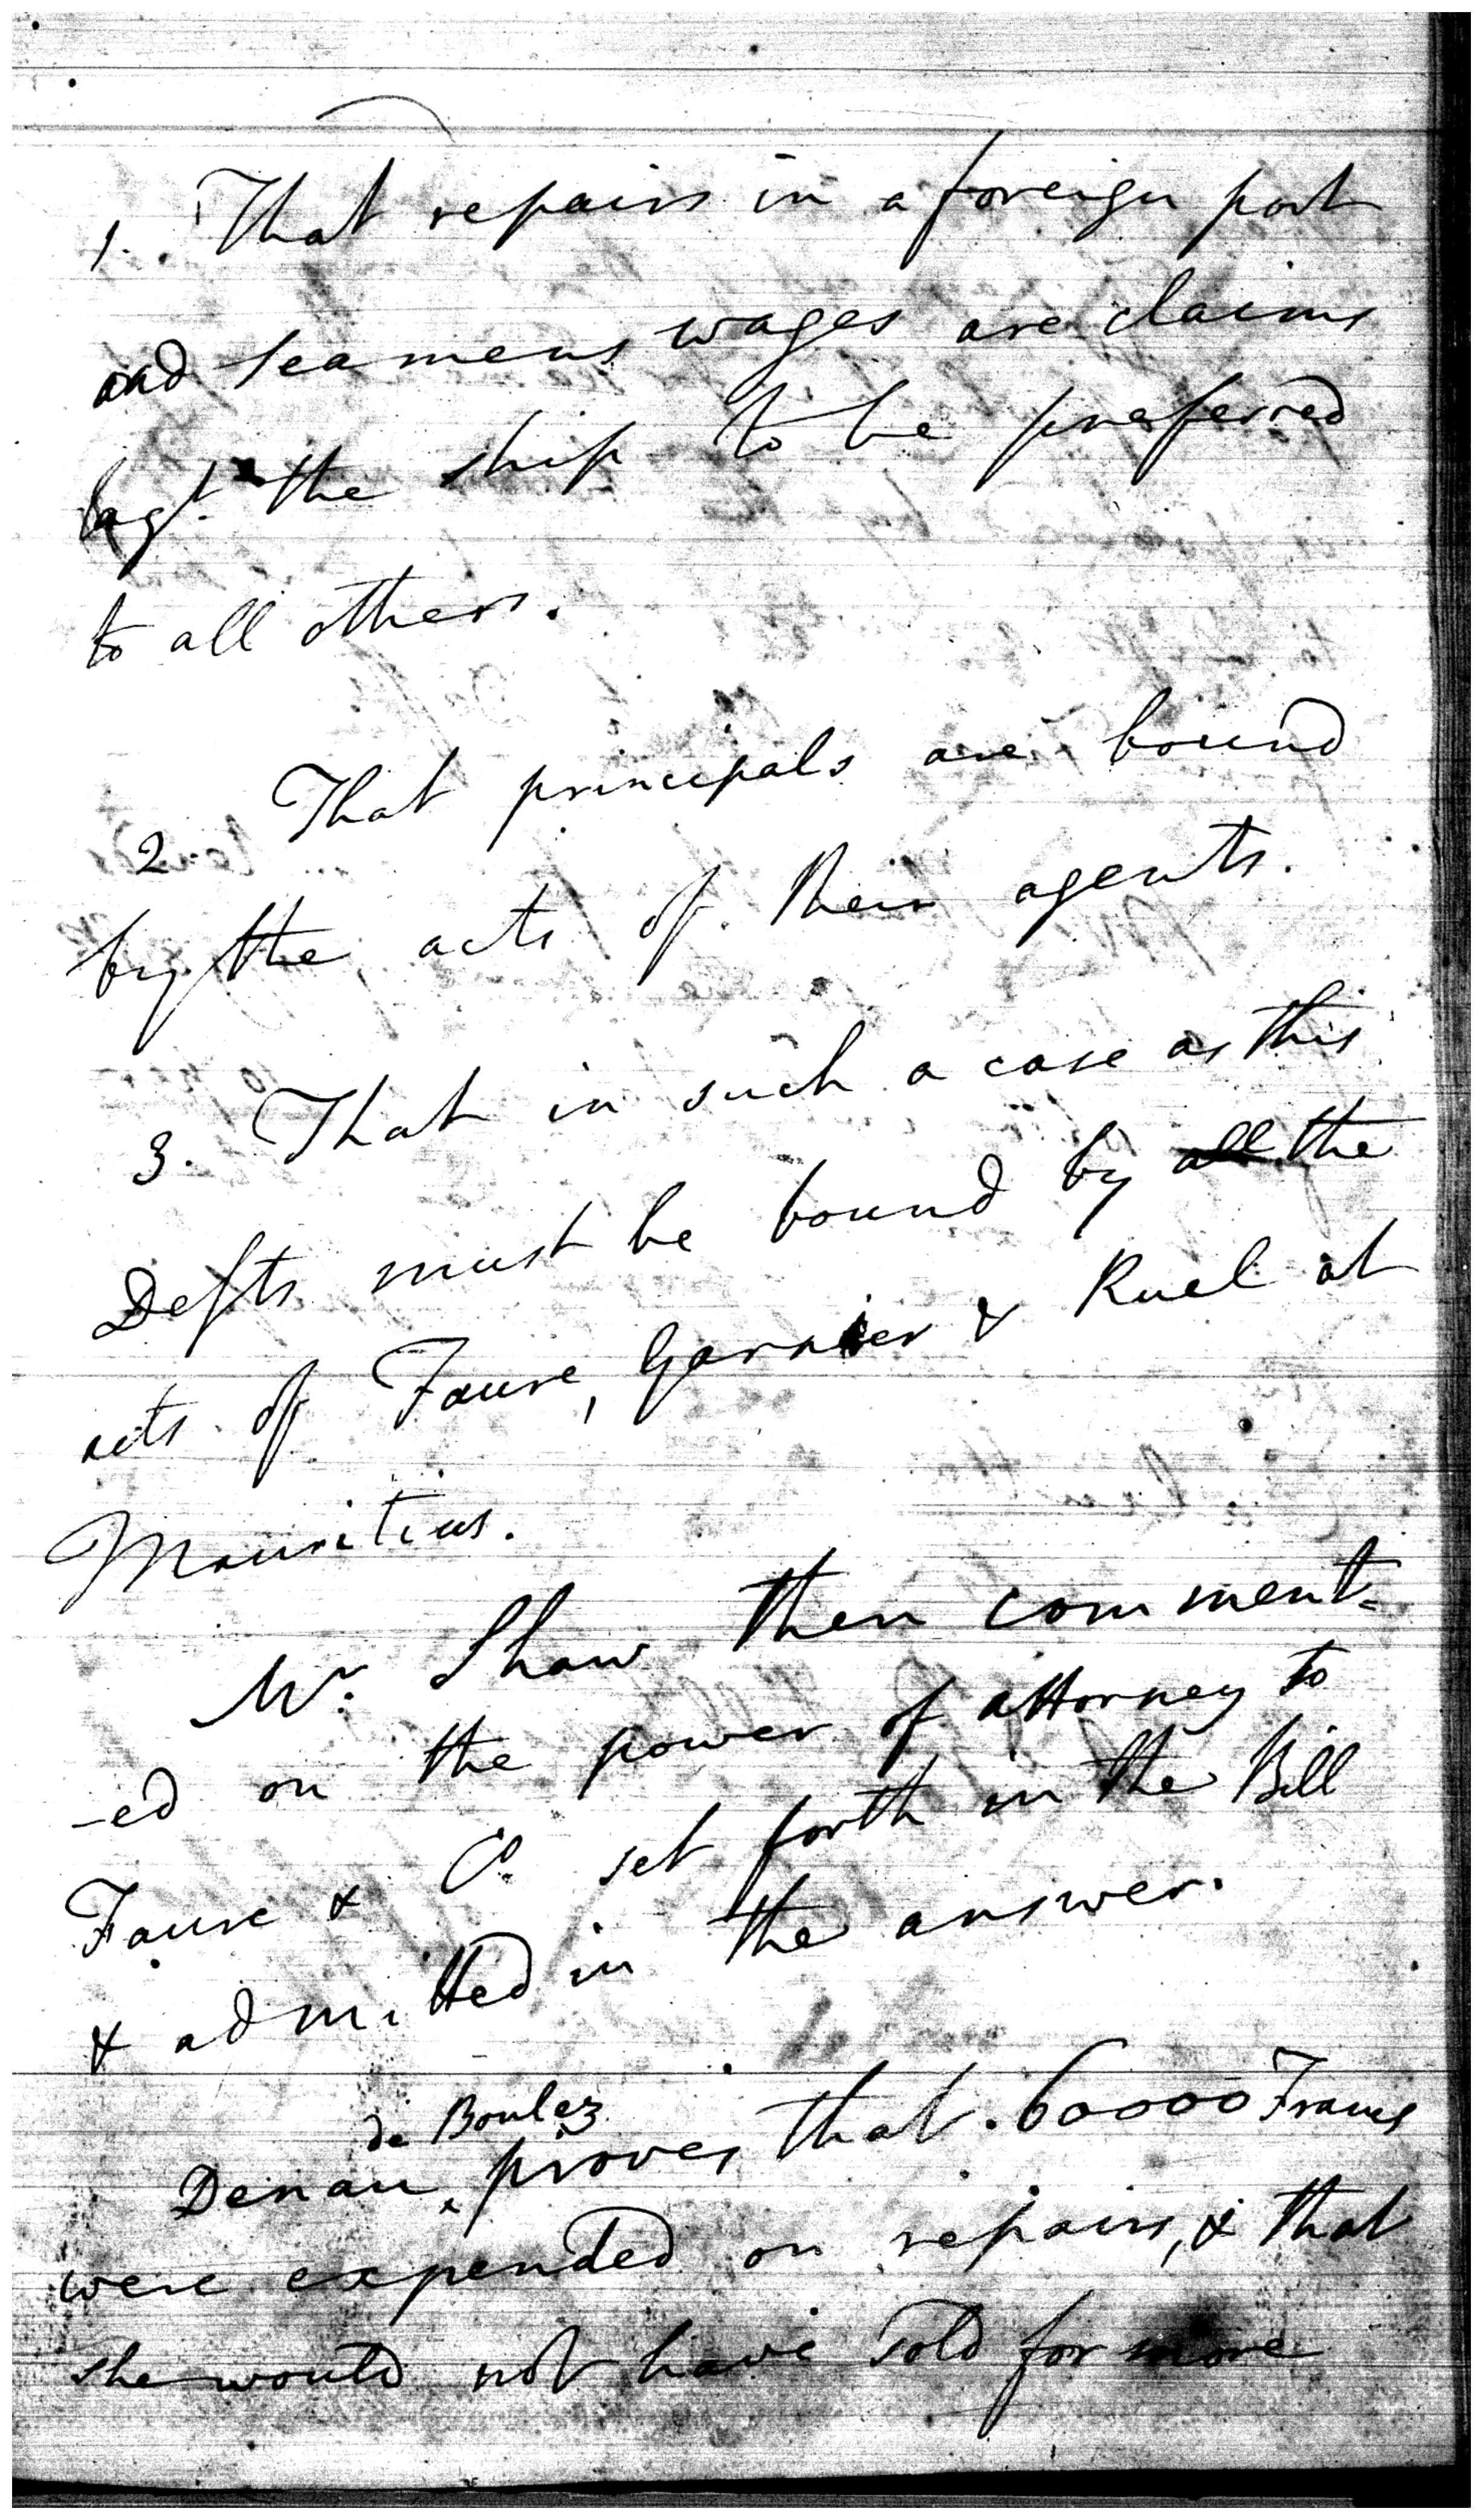 1. That repairs in a foreign port
and seamens wages are claims
agt. the ship to be preferred
to all others.
2 That principals are bound
by the acts of their agents.
3. That in such a case as this
Defts must be bound by all the
acts of Faure, Garnier & Ruel at
Mauritius.
Mr. Shaw then comment=
-ed on the power of attorney to
Faure & Co. set forth in the Bill
& admitted in the answer.
de Boulez
Denau proves that 60000 Francs
were expended on repairs, & that
she would not have sold for more